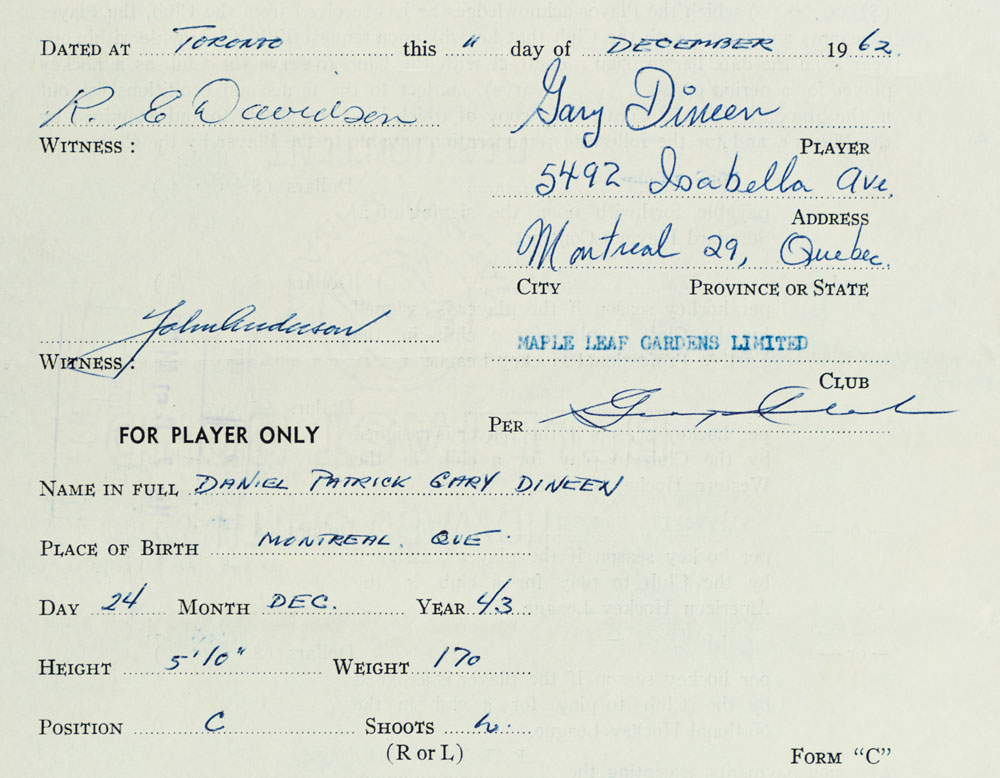 DATED AT TORONTO this " day of DECEMBER 1962.
R. E. Davidson Gary Dineen
WITNESS: PLAYER
5492 Isabella Ave.
ADDRESS
Montreal 29, Quebec.
CITY PROVINCE OR STATE
John Anderson
MAPLE LEAF GARDENS LIMITED
WITNESS:
CLUB
PER
FOR PLAYER ONLY
NAME IN FULL DANIEL PATRICK GARY DINEEN
PLACE OF BIRTH MONTREAL. QUE.
DAY 24 MONTH DEC. YEAR 43
HEIGHT 5'10" WEIGHT 170
POSITION C SHOOTS L.
(R or L) FORM "C"